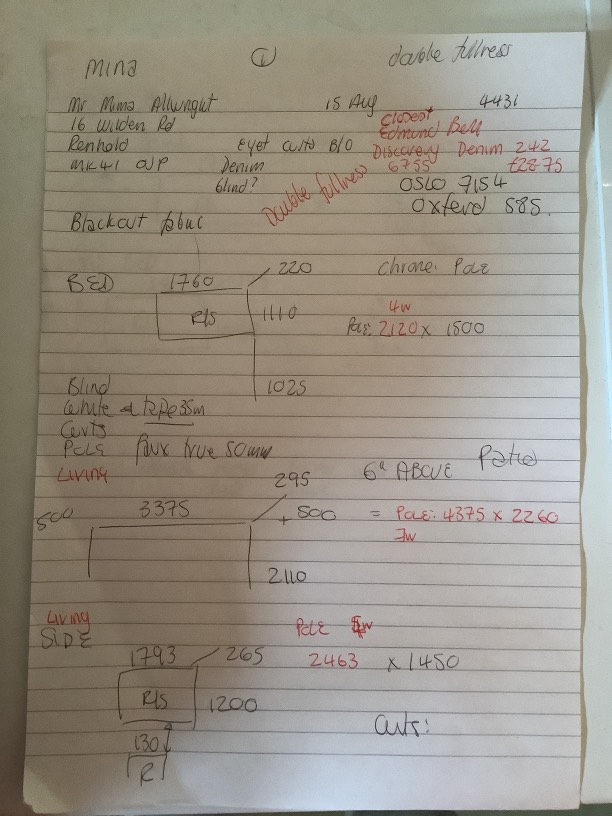 Mina ① double fullness
Mr Mina Allwright 15 Aug 4431
16 Wilden Rd Closest
Renhold Eyet curts B/O Edmund Bell
MK41 OJP Denim Discovery Denim 242
blind? 6755 £28.75
Double fullness OSLO 7154
Oxford 585.
Blackout fabric
BED 1760 220 Chrome Pole
R/S 1110 4w
Pole 2120 x 1500
1025
Blind
White tape 35m
Curts
Pole faux 50mm
Living 295 6" ABOVE Patio
500 3375 + 500 = Pole: 4375 x 2260
7w
2110
Living
SIDE Pole w
1793 265 2463 x 1450
R/S 1200
130 Curts:
R